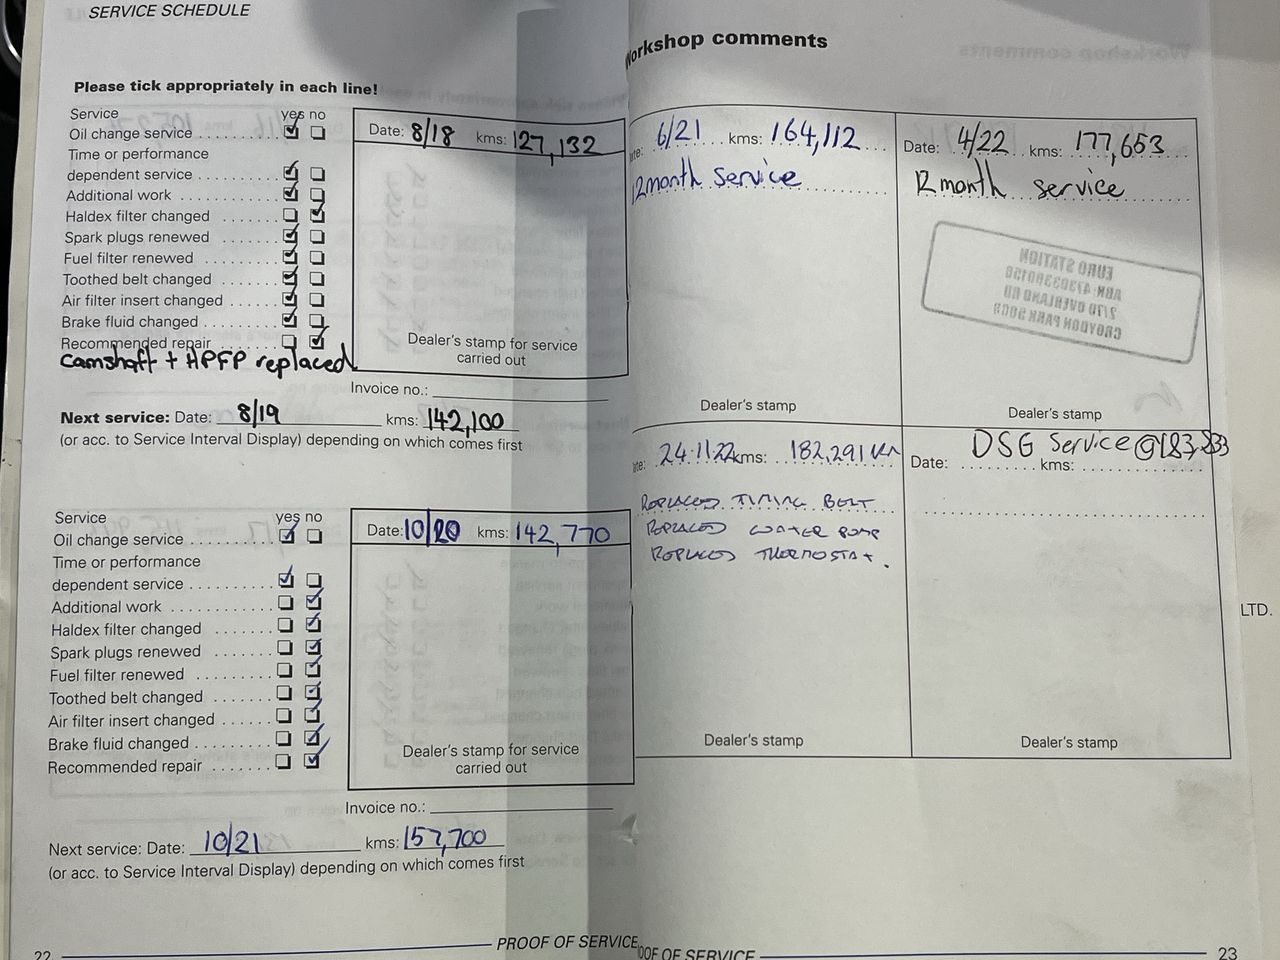 SERVICE SCHEDULE
Please tick appropriately in each line!
Service yes no
Oil change service
Time or performance
dependent service
Additional work
Haldex filter changed
Spark plugs renewed
Fuel filter renewed
Toothed belt changed
Air filter insert changed
Brake fluid changed
Recommended repair
Camshaft + HPFP replaced
Date: 8/18 kms: 127,132
Dealer's stamp for service
carried out
Invoice no.:
Next service: Date: 8/19 kms: 142,100
(or acc. to Service Interval Display) depending on which comes first
Service yes no
Oil change service
Time or performance
dependent service
Additional work
Haldex filter changed
Spark plugs renewed
Fuel filter renewed
Toothed belt changed
Air filter insert changed
Brake fluid changed
Recommended repair
Date: 10/20 kms: 142,770
Dealer's stamp for service
carried out
Invoice no.:
Next service: Date: 10/21 kms: 157,700
(or acc. to Service Interval Display) depending on which comes first
22 PROOF OF SERVICE
Workshop comments
6/21 kms: 164,112
12 month service
Dealer's stamp
Date: 4/22 kms: 177,653
12 month service
EURO STATION
CROYDON PARK
Dealer's stamp
24.11.22 kms: 182,291 KM
REPLACED TIMING BELT
REPLACED WATER PUMP
REPLACED THERMOSTAT.
Dealer's stamp
DSG Service @ 183,833
Date: kms:
Dealer's stamp
LTD.
OOF OF SERVICE 23